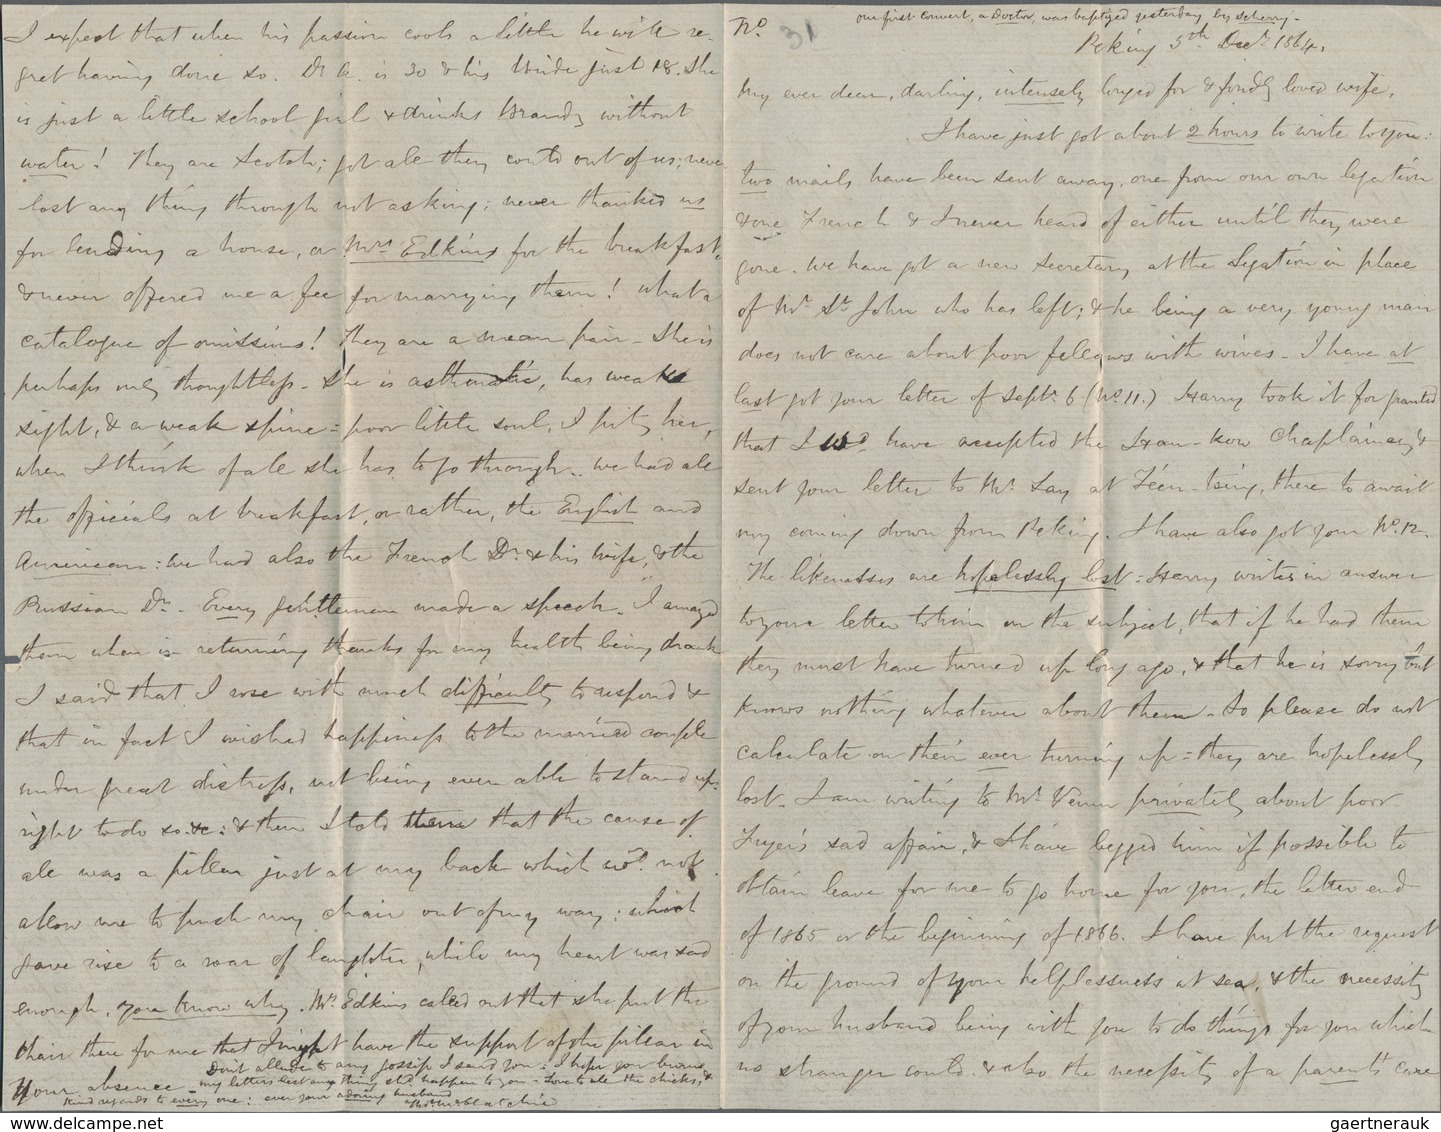 I expect that when his passion cools a little he will re-
gret having done so. Dr A. is 30 & his bride just 18. She
is just a little school girl & drinks Brandy without
water! They are Scotch; got all they could out of us; never
lost any thing through not asking; never thanked us
for lending a house, or Mrs Edkins for the breakfast,
& never offered me a fee for marrying them! what a
catalogue of omissions! They are a mean pair - She is
perhaps only thoughtless - She is asthmatic, has weak
sight, & a weak spine = poor little soul, I pity her,
when I think of all she has to go through - we had all
the officials at breakfast, or rather, the English and
American: we had also the French Dr & his wife, & the
Prussian Dr - Every gentleman made a speech. I amazed
them when in returning thanks for my health being drank
I said that I rose with much difficulty to respond &
that in fact I wished happiness to the married couple
under great distress, not being even able to stand up-
right to do so &c: & then I told them that the cause of
all was a pillar just at my back which wod not
allow me to push my chair out of my way: which
gave rise to a roar of laughter, while my heart was sad
enough, you know why. Mrs Edkins called out that she put the
chair there for me that I might have the support of the pillar in
your absence -
Don't allude to any gossip I send you: I hope you burn
my letters lest any thing shd happen to you - Love to all the chicks, &
kind regards to every one: ever your adoring husband
Thos McClatchie
No 31
our first convert, a Doctor, was baptized yesterday by Scherry -
Peking 5th Decr 1864.
My ever dear, darling, intensely longed for & fondly loved wife,
I have just got about 2 hours to write to you:
two mails have been sent away, one from our own legation
& one French & I never heard of either until they were
gone. We have got a new Secretary at the Legation in place
of Mr St John who has left; & he being a very young man
does not care about poor fellows with wives - I have at
last got your letter of Septr 6 (No 11.) Harry took it for granted
that I wod have accepted the Han-kow Chaplaincy &
sent your letter to Mr Lay at Teen-tsing, there to await
my coming down from Peking. I have also got your No 12.
The likenesses are hopelessly lost = Harry writes in answer
to your letter to him on the subject, that if he had them
they must have turned up long ago, & that he is sorry but
knows nothing whatever about them - So please do not
calculate on their ever turning up = they are hopelessly
lost - I am writing to Mr Venn privately about poor
Fryer's sad affair, & I have begged him if possible to
obtain leave for me to go home for you, the latter end
of 1865 or the beginning of 1866. I have put the request
on the ground of your helplessness at sea, & the necessity
of your husband being with you to do things for you which
no stranger could. & also the necessity of a parent's care
gaertnerauk